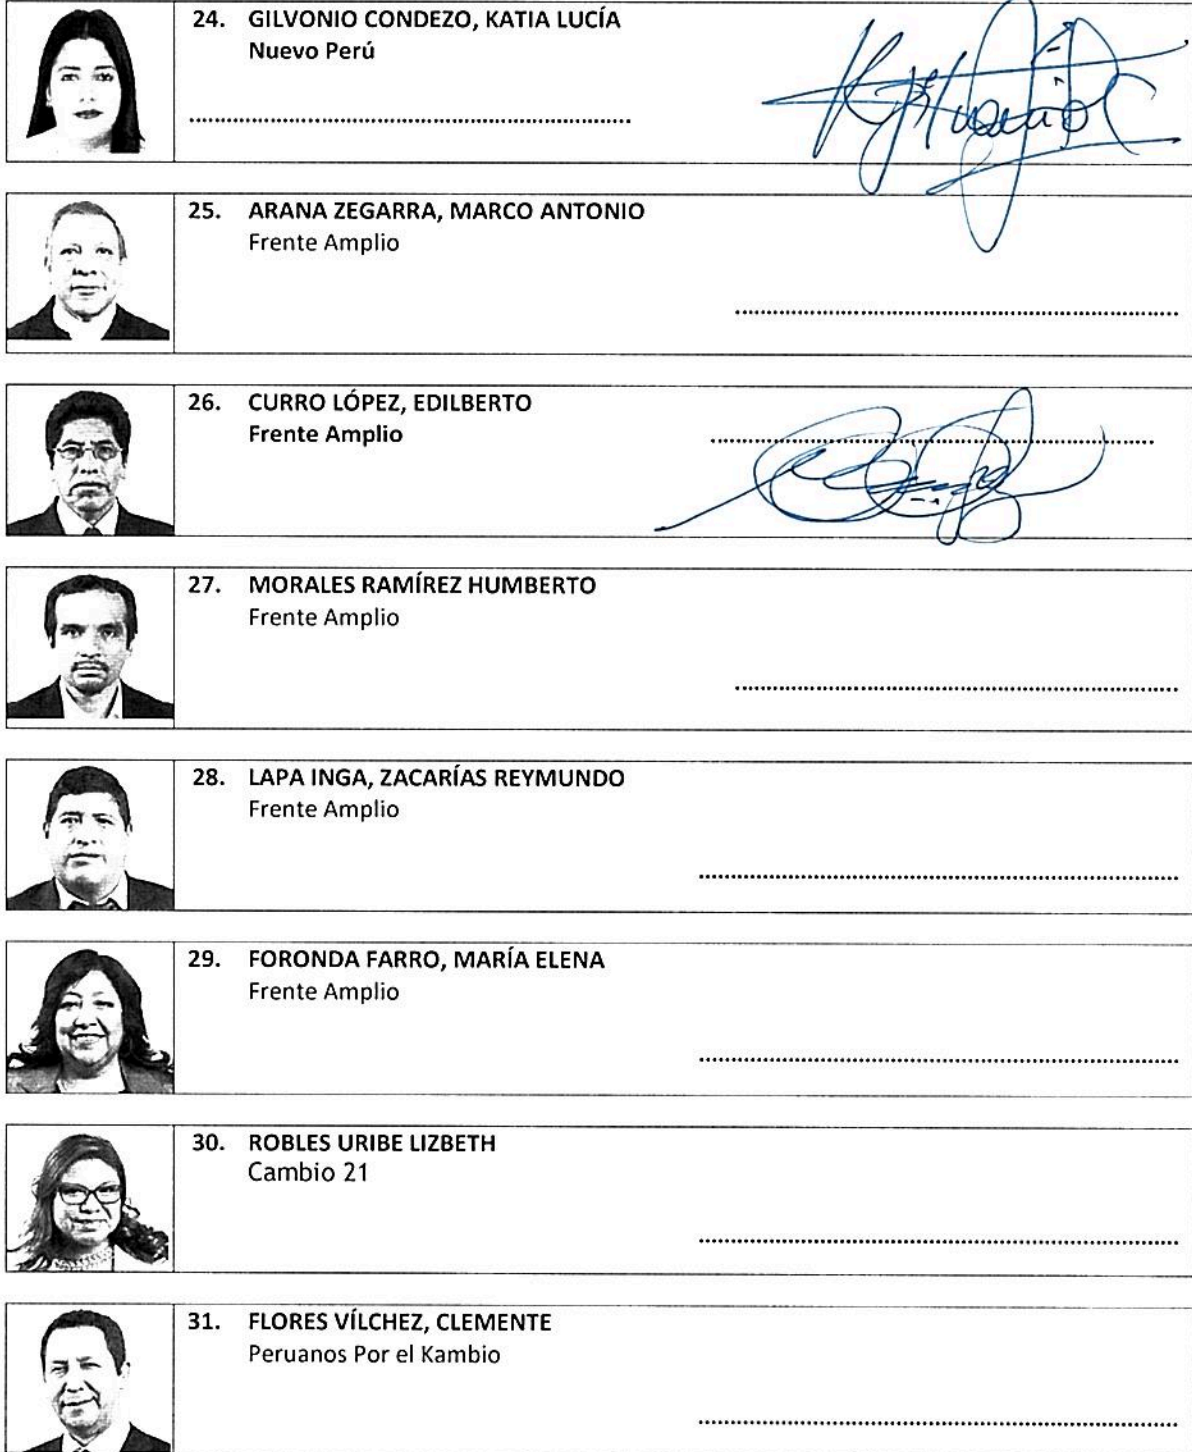 24. GILVONIO CONDEZO, KATIA LUCÍA
Nuevo Perú
25. ARANA ZEGARRA, MARCO ANTONIO
Frente Amplio
26. CURRO LÓPEZ, EDILBERTO
Frente Amplio
27. MORALES RAMÍREZ HUMBERTO
Frente Amplio
28. LAPA INGA, ZACARÍAS REYMUNDO
Frente Amplio
29. FORONDA FARRO, MARÍA ELENA
Frente Amplio
30. ROBLES URIBE LIZBETH
Cambio 21
31. FLORES VÍLCHEZ, CLEMENTE
Peruanos Por el Kambio